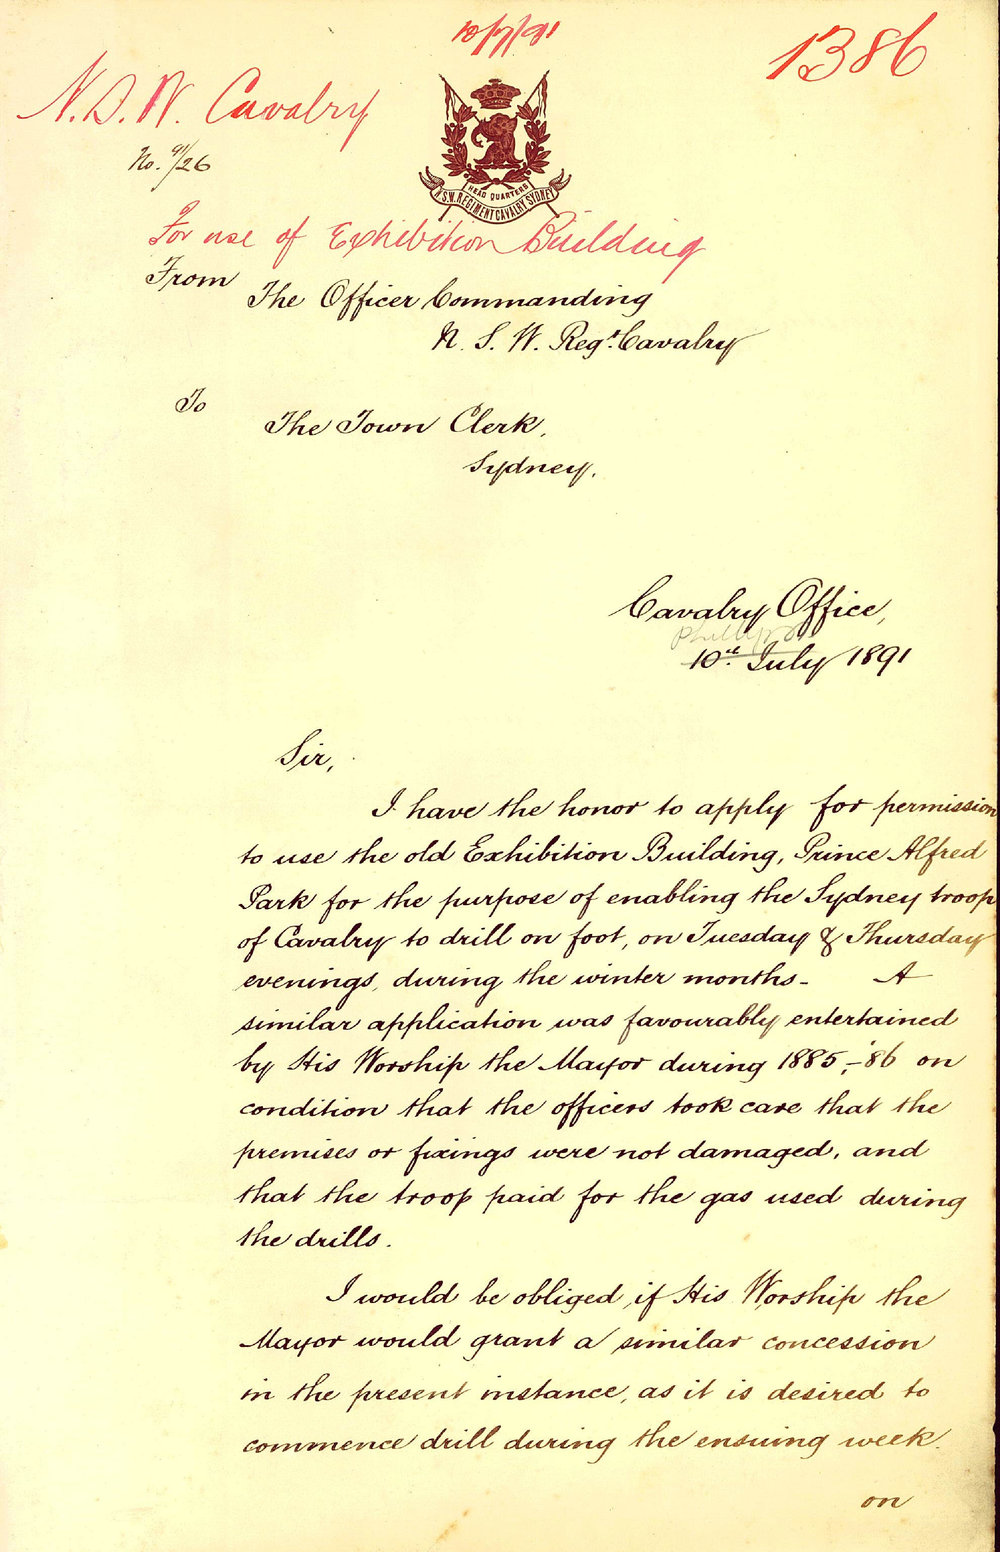 10/7/91
1386
N.S.W. Cavalry
No. 91/26
HEAD QUARTERS
N.S.W. REGIMENT CAVALRY SYDNEY
For use of Exhibition Building
From
The Officer Commanding
N. S. W. Regt. Cavalry
To
The Town Clerk,
Sydney.
Cavalry Office,
10th July 1891
Sir,
I have the honor to apply for permission
to use the old Exhibition Building, Prince Alfred
Park for the purpose of enabling the Sydney troop
of Cavalry to drill on foot, on Tuesday & Thursday
evenings, during the winter months- A
similar application was favourably entertained
by His Worship the Mayor during 1885,-'86 on
condition that the officers took care that the
premises or fixings were not damaged, and
that the troop paid for the gas used during
the drills.
I would be obliged, if His Worship the
Mayor would grant a similar concession
in the present instance, as it is desired to
commence drill during the ensuing week.
on